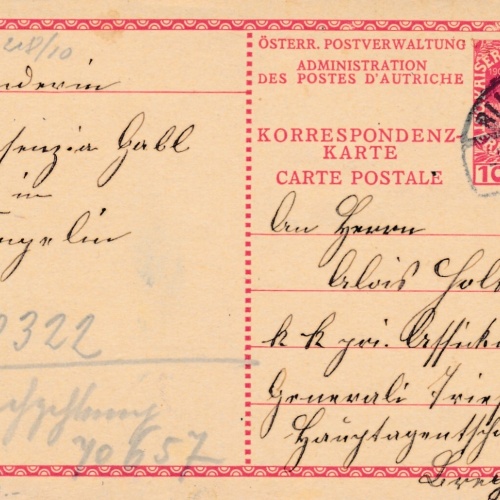 218/10
nderin
senzia Gabl
in
ngelin
0322
70657
ÖSTERR. POSTVERWALTUNG
ADMINISTRATION
DES POSTES D'AUTRICHE
KORRESPONDENZ-
KARTE
CARTE POSTALE
10
An Herrn
Alois Hol
k k pri. Assicu
Generali Tries
Hauptagentscha
Breg